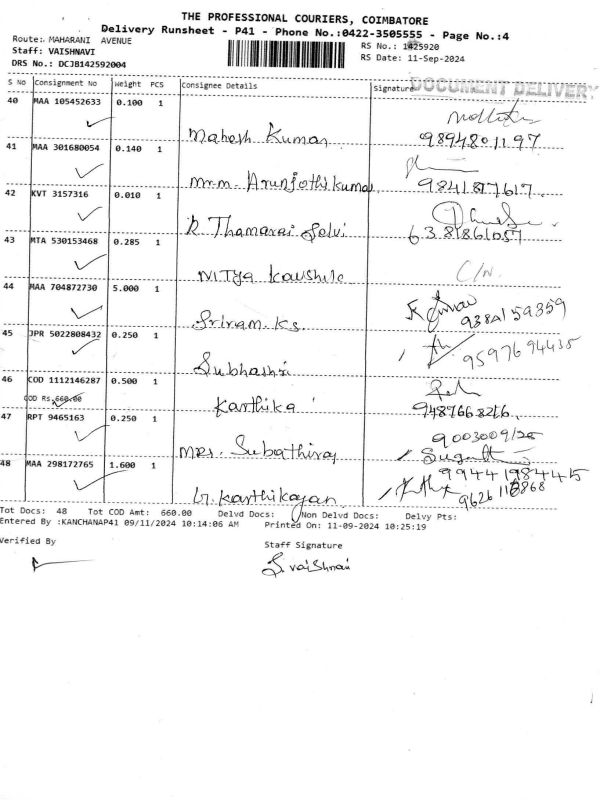 THE PROFESSIONAL COURIERS, COIMBATORE
Delivery Runsheet - P41 - Phone No.:0422-3505555 - Page No.:4
Route: MAHARANI AVENUE
RS No.: 1425920
Staff: VAISHNAVI
RS Date: 11-Sep-2024
DRS No.: DCJB142592004
DOCUMENT DELIVERY
S No Consignment No Weight PCS Consignee Details Signature
40 MAA 105452633 0.100 1
Mahesh Kumar 9894801197
41 MAA 301680054 0.140 1
Mr.M. Arunjothikumar 9841817617
42 KVT 3157316 0.010 1
R Thamarai Selvi 6381861057
43 MTA 530153468 0.285 1
Nitya Kaushik C/N.
44 MAA 704872730 5.000 1
Sriram KS 9384159359
45 JPR 5022808432 0.250 1
Subhashri 9597694435
46 COD 1112146287 0.500 1
COD Rs.660.00
Karthika 9487668276
47 RPT 9465163 0.250 1
9003009125
Mrs. Subathiraj
48 MAA 298172765 1.600 1
9944198445
G. Karthikayan 9626118868
Tot Docs: 48 Tot COD Amt: 660.00 Delvd Docs: Non Delvd Docs: Delvy Pts:
Entered By :KANCHANAP41 09/11/2024 10:14:06 AM Printed On: 11-09-2024 10:25:19
Verified By
Staff Signature
S. Vaishnavi